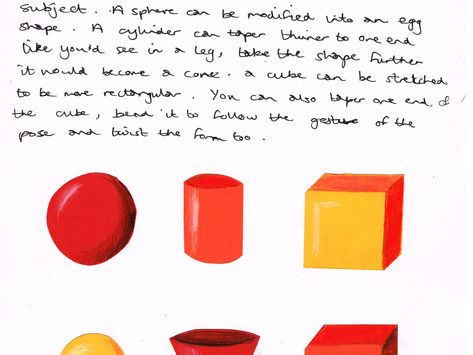 subject. A sphere can be modified into an egg
shape. A cylider can taper thinner to one end
like you'd see in a leg, take the shape further
it would become a cone. a cube can be stretched
to be more rectangular. You can also taper one end of
the cube, bend it to follow the gesture of the
pose and twist the form too.